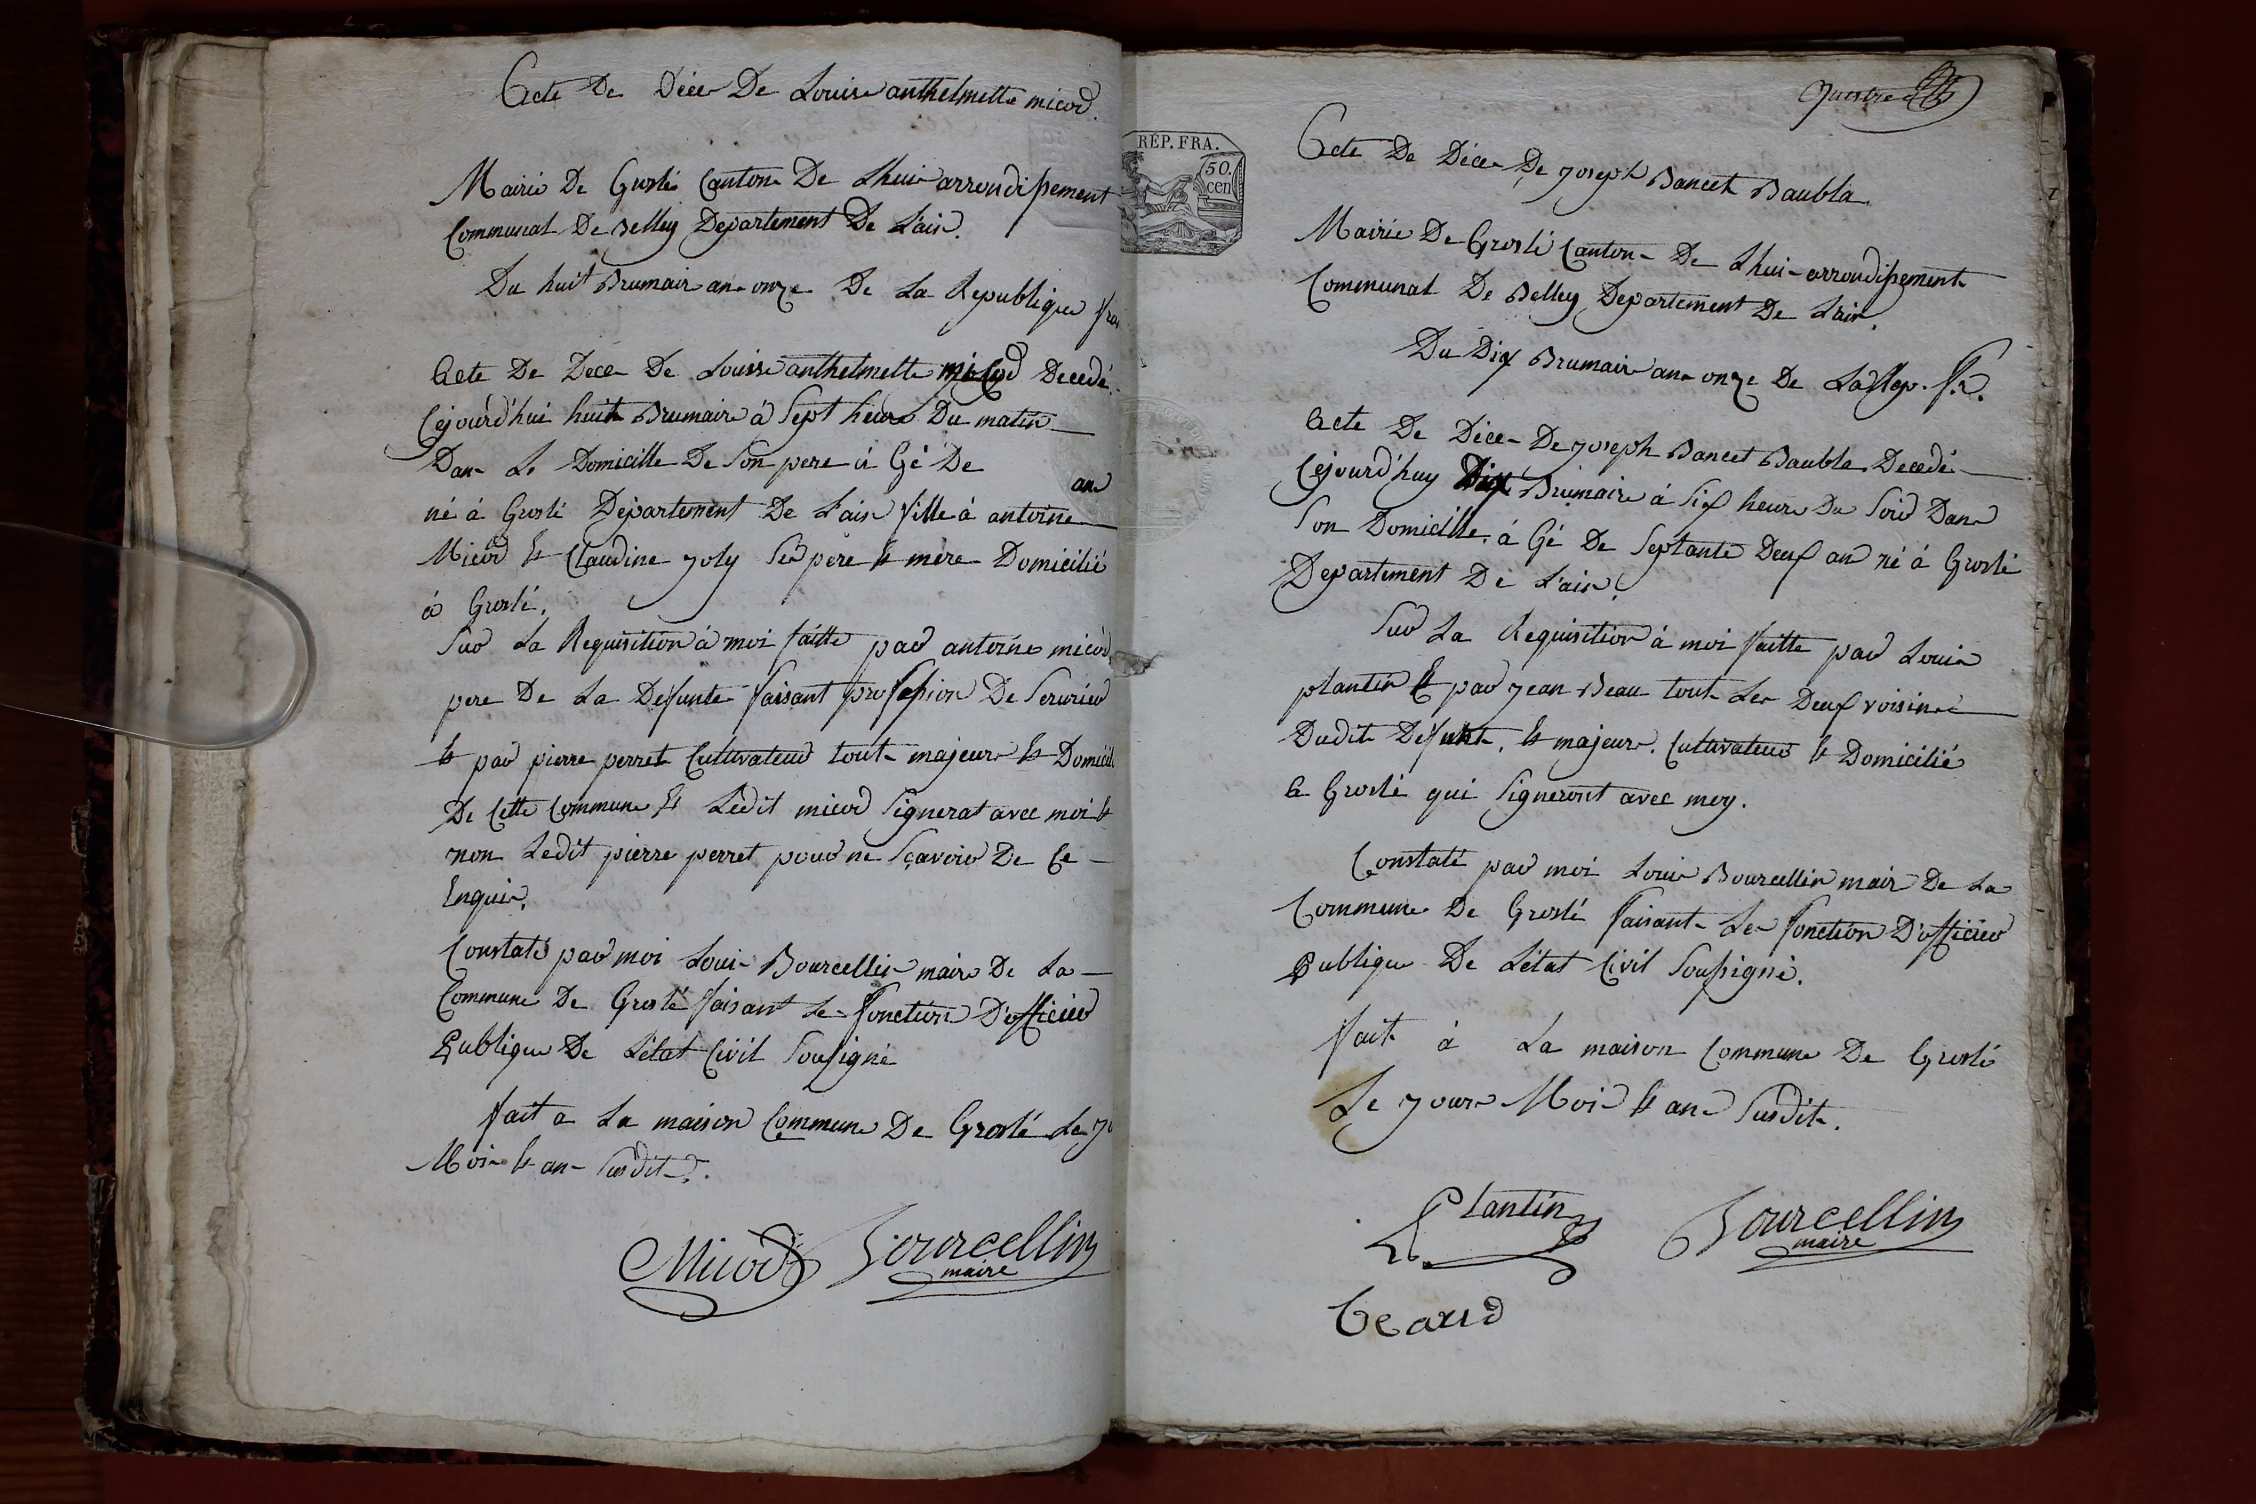 Acte De Déce De Louise anthelmette micod.
Mairie De Groslé Canton De Lhui arrondissement
Communal De Belley Departement De L'ain.
Du huit Brumair an onze De La Republique fra
Acte De Dece De Louise anthelmette micod Decedé
Cejourd'hui huit Brumaire à Sept heure Du matin
Dan Le Domicille De Son pere à Gé De
an
né à Groslé Département De L'ain fille à antoine
Micod Et Claudine joly Sés père Et mère Domicilié
à Groslé.
Sur La Requisition à moi faitte par antoine micod
pere De La Defunte faisant profession De Serurier
Et par pierre perret Cultivateur tout majeur Et Domicil
De Cette Commune Et Ledit micod Signerat avec moi Et
non Ledit pierre perret pour ne Sçavoir De Ce
Enqui.
Constaté par moi Loui Bourcellin maire De La
Commune De Groslé faisant Le fonction D'officier
Publique De L'état Civil Sousigné
fait a La maison Commune De Groslé Le jo
Moi Et an Susdit.
Micod Bourcellin
maire
RÉP. FRA.
50.
cen
Acte De Déce De joseph Bancet Baubla.
Mairie De Groslé Canton De Lhui arrondissement
Communal De Belley Departement De L'ain.
Du Dix Brumair an onze De La Rep. fr.
Acte De Déce De joseph Bancet Baubla Decedé
Cejourd'huy Dix Brumaire à Six heure Du Soir Dan
Son Domicille à Gé De Septante Deux an né à Groslé
Departement De L'ain.
Sur La Requisition à moi faitte par Loui
plantin Et par jean Beau tout Les Deux voisin
Dudit Defunt. Et majeur. Cultivateur Et Domicilié
a Groslé qui Signeront avec moy.
Constaté par moi Loui Bourcellin mair De La
Commune De Groslé faisant Le fonction D'officier
Publique De L'état Civil Soussigné.
fait à La maison Commune De Groslé
Le jour Moi Et an Susdit.
Plantin Bourcellin
maire